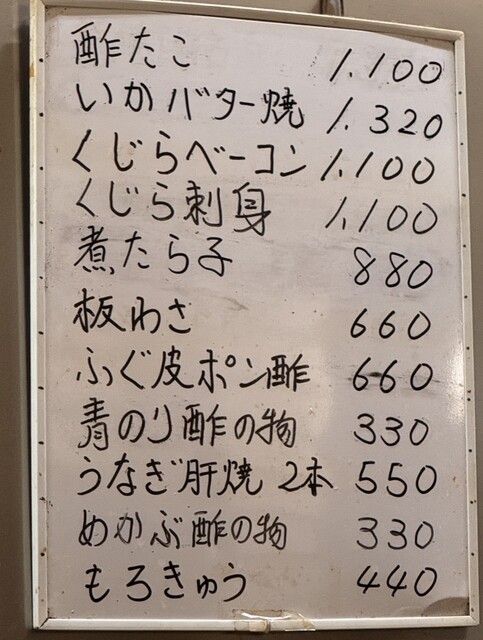 酢たこ 1.100
いかバター焼 1.320
くじらベーコン 1.100
くじら刺身 1.100
煮たら子 880
板わさ 660
ふぐ皮ポン酢 660
青のり酢の物 330
うなぎ肝焼 2本 550
めかぶ酢の物 330
もろきゅう 440